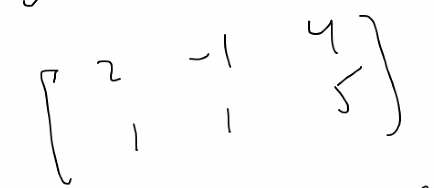 [ 2 -1 4
1 1 5 ]